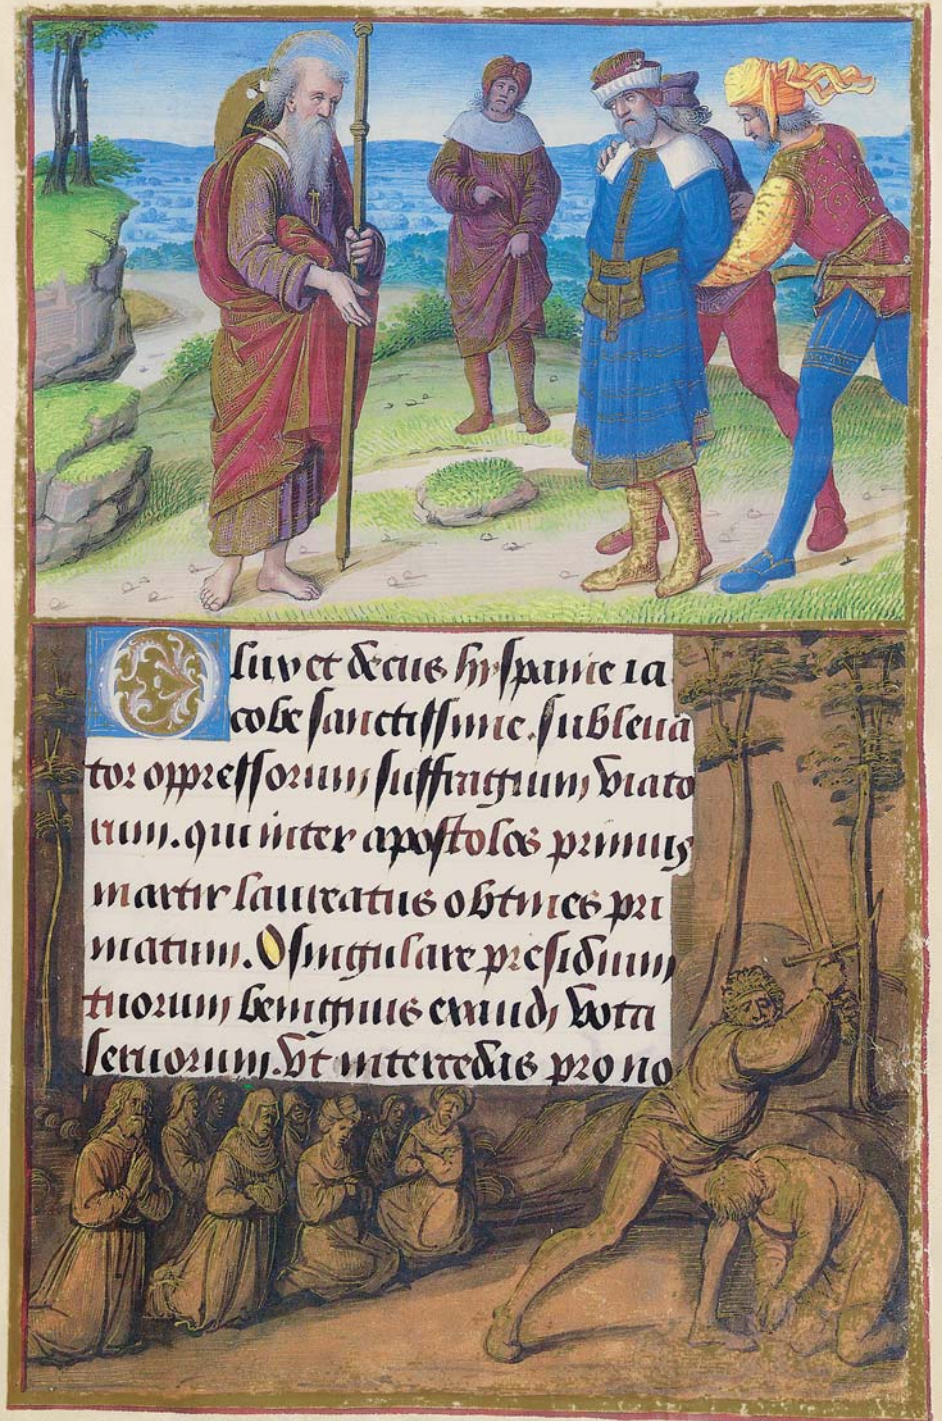 O lux et decus hyspanie ia
cobe sanctissime. subleua
tor oppressorum suffragium viato
rum. qui inter apostolos primus
martir laureatus obtines pri
matum. O singulare presidium
tuorum benignus exaudi vota
seruorum. vt intercedas pro no